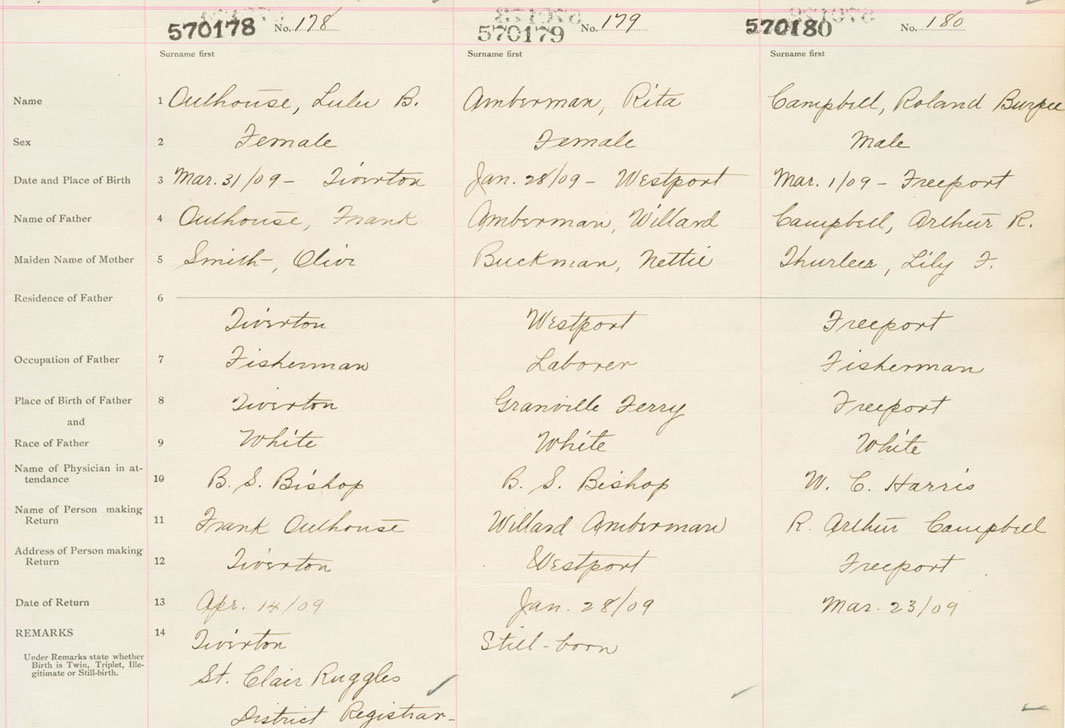 570178 No. 178 570179 No. 179 570180 No. 180
Surname first Surname first Surname first
Name 1 Outhouse, Lulu B. Amberman, Rita Campbell, Roland Burpee
Sex 2 Female Female Male
Date and Place of Birth 3 Mar. 31/09 - Tiverton Jan. 28/09 - Westport Mar. 1/09 - Freeport
Name of Father 4 Outhouse, Frank Amberman, Willard Campbell, Arthur R.
Maiden Name of Mother 5 Smith, Olive Buckman, Nettie Lily F.
Residence of Father 6
Tiverton Westport Freeport
Occupation of Father 7 Fisherman Laborer Fisherman
Place of Birth of Father 8 Tiverton Granville Ferry Freeport
and
Race of Father 9 White White White
Name of Physician in at-
tendance 10 B. S. Bishop B. S. Bishop W. C. Harris
Name of Person making
Return 11 Frank Outhouse Willard Amberman R. Arthur Campbell
Address of Person making
Return 12 Tiverton Westport Freeport
Date of Return 13 Apr. 14/09 Jan. 28/09 Mar. 23/09
REMARKS 14 Tiverton Still-born
Under Remarks state whether
Birth is Twin, Triplet, Ille-
gitimate or Still-birth.
St. Clair Ruggles
District Registrar-